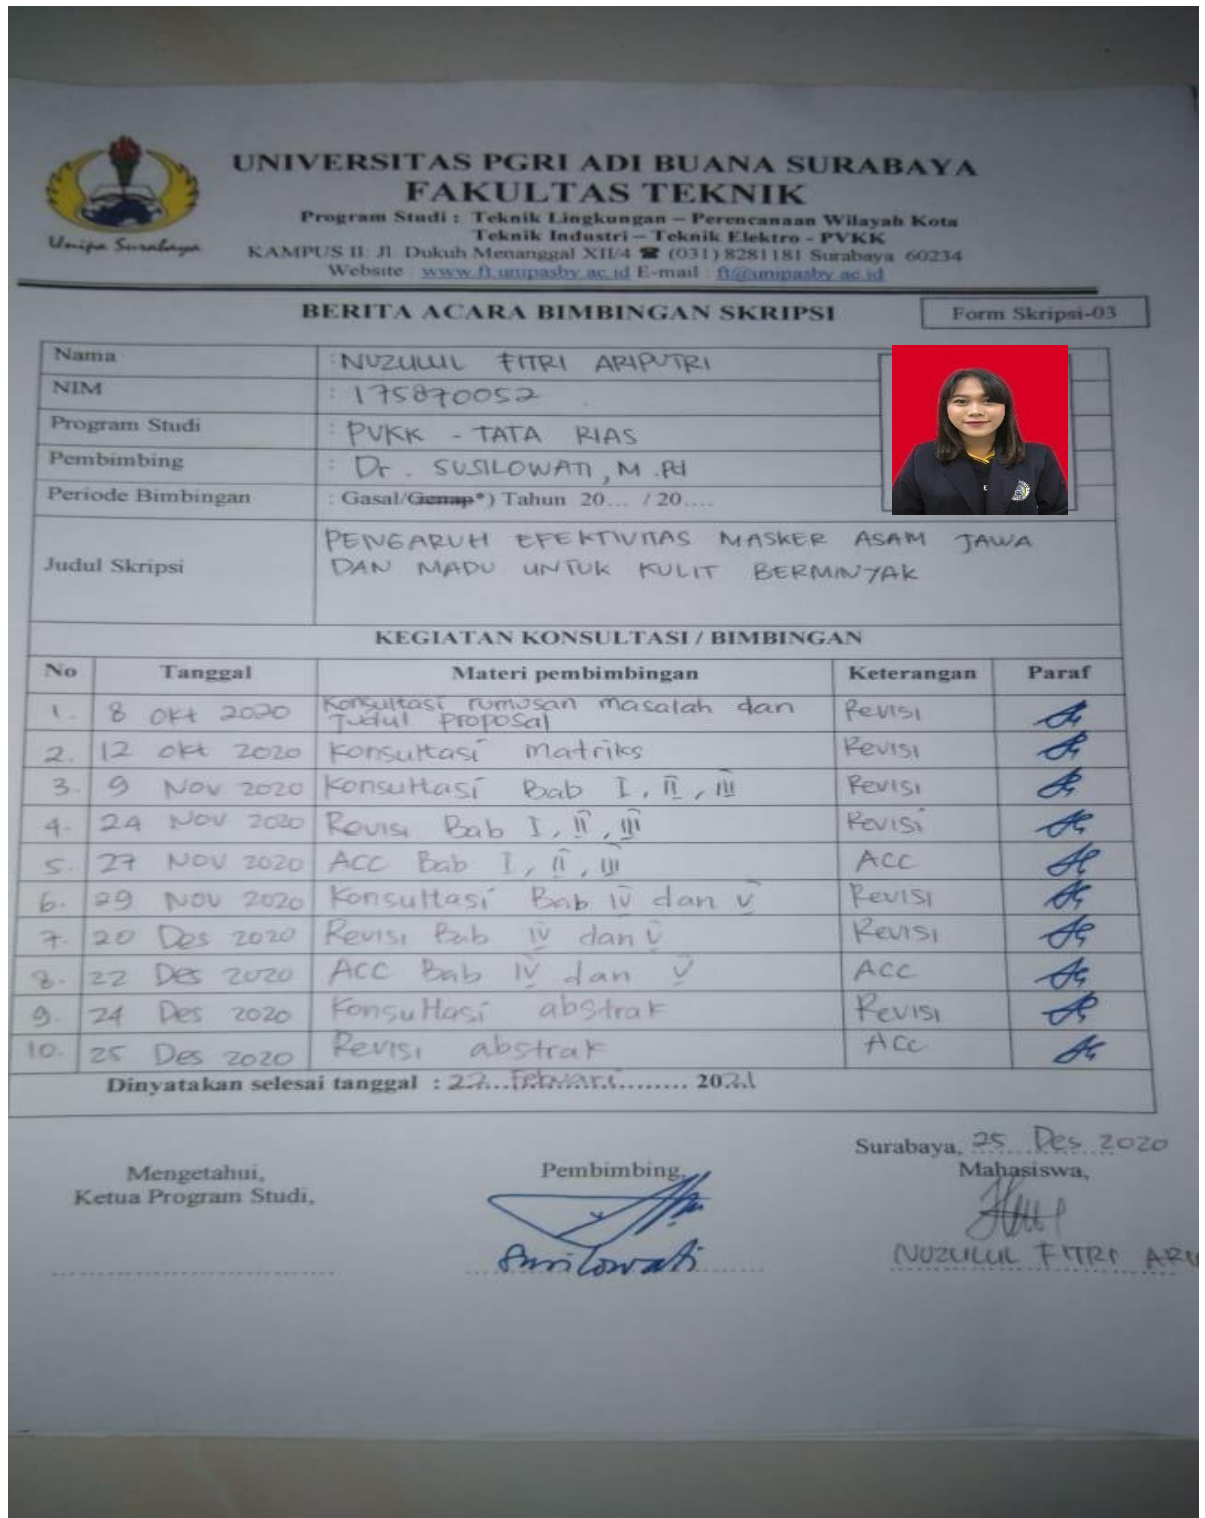 UNIVERSITAS PGRI ADI BUANA SURABAYA
FAKULTAS TEKNIK
Program Studi : Teknik Lingkungan – Perencanaan Wilayah Kota
Teknik Industri – Teknik Elektro - PVKK
Unipa Surabaya
KAMPUS II: Jl. Dukuh Menanggal XII/4 ☎ (031) 8281181 Surabaya 60234
Website : www.ft.unipasby.ac.id E-mail : ft@unipasby.ac.id
BERITA ACARA BIMBINGAN SKRIPSI Form Skripsi-03
Nama : NUZULUL FITRI ARIPUTRI
NIM : 175870052
Program Studi : PVKK - TATA RIAS
Pembimbing : Dr. SUSILOWATI, M.Pd
Periode Bimbingan : Gasal/Genap*) Tahun 20... / 20....
PENGARUH EFEKTIVITAS MASKER ASAM JAWA
Judul Skripsi DAN MADU UNTUK KULIT BERMINYAK
KEGIATAN KONSULTASI / BIMBINGAN
No Tanggal Materi pembimbingan Keterangan Paraf
1. 8 Okt 2020 Konsultasi rumusan masalah dan Revisi
Judul proposal
2. 12 Okt 2020 Konsultasi matriks Revisi
3. 9 Nov 2020 Konsultasi Bab I, II, III Revisi
4. 24 Nov 2020 Revisi Bab I, II, III Revisi
5. 27 Nov 2020 ACC Bab I, II, III ACC
6. 29 Nov 2020 Konsultasi Bab IV dan V Revisi
7. 20 Des 2020 Revisi Bab IV dan V Revisi
8. 22 Des 2020 ACC Bab IV dan V ACC
9. 24 Des 2020 Konsultasi abstrak Revisi
10. 25 Des 2020 Revisi abstrak ACC
Dinyatakan selesai tanggal : 22...Februari......... 2021
Surabaya, 25 Des 2020
Mengetahui, Pembimbing, Mahasiswa,
Ketua Program Studi,
Susilowati
NUZULUL FITRI ARI